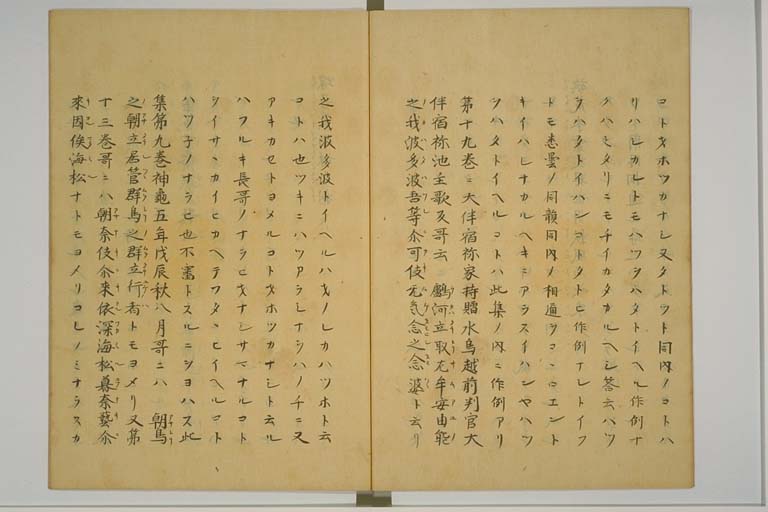 コトオホツカナシ又タトツト同内ノコトハ
リハシカルトモハツヲハタトイヘル作例ナ
クハミタリニモチイカタカルヘシ答云ハツ
ヲハタトイハンコトタトヒ作例ナレトイフ
トモ悉曇ノ同韻同内ノ相通ヲコヽロエント
キイハレナカルヘキニアラスイハンヤハツ
ヲハタトイヘルコトハ此集ノ内ニ作例アリ
第十九巻ニ大伴宿祢家持贈水鳥越前判官大
伴宿祢池主歌及哥云 鸕河立取左牟安由能
之我波多波吾等尓可伎无氣念之念婆ト云リ
之我波多波トイヘルハオノレカハツホト云
コトハ也ツキニハツアラシナシハノチニ又
アキカセトヨメルコトオホツカナシト云ル
ハフルキ長哥ノナラヒオナシサマナルコト
ヲイサヽカイヒカヘテフタヽヒイヘルコト
ハツ子ノナラヒ也不審トスルニヲヨハス此
集第九巻神龜五年戊辰秋八月哥ニハ 朝鳥
之朝立居管群鳥之群立行者トモヨメリ又第
十三巻哥ニハ朝奈伎尓来依深海松暮奈藝尓
來因俣海松ナトモヨメリコレノミナラスカ